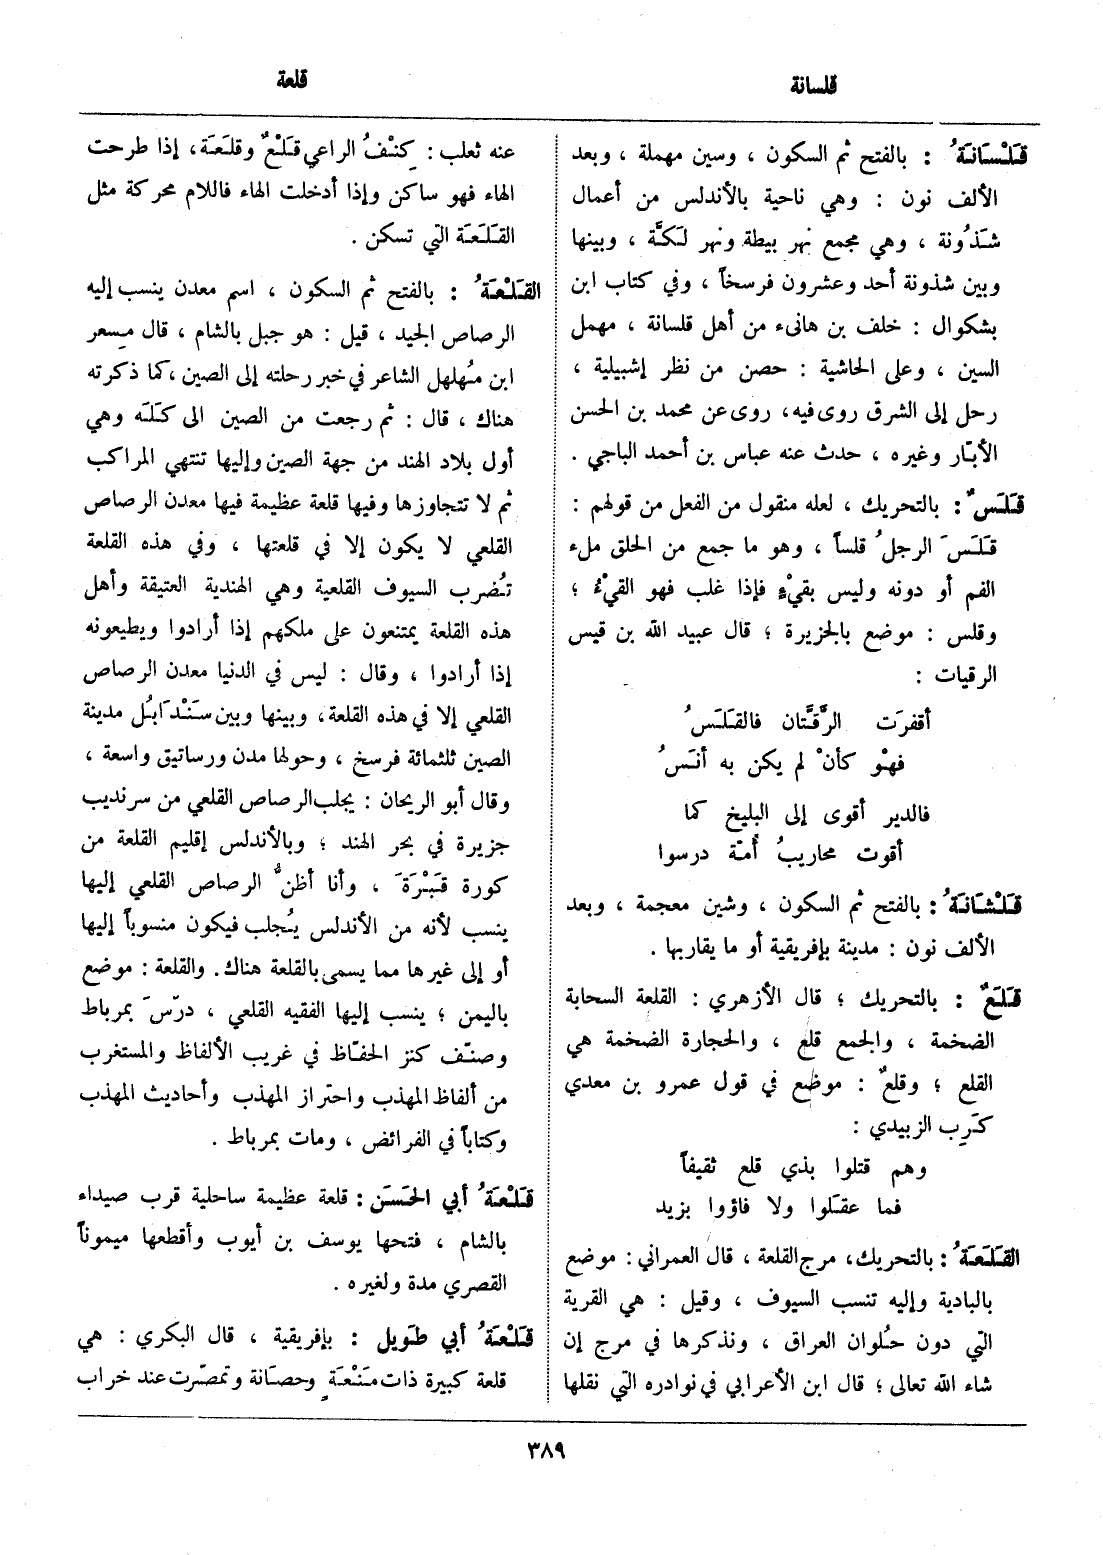 قلسانة
قلعة
قَلْسَانَةُ : بالفتح ثم السكون ، وسين مهملة ، وبعد
الألف نون : وهي ناحية بالأندلس من أعمال
شَذُونة ، وهي مجمع نهر بيطة ونهر لَكَّة ، وبينها
وبين شذونة أحد وعشرون فرسخاً ، وفي كتاب ابن
بشكوال : خلف بن هانىء من أهل قلسانة ، مهمل
السين ، وعلى الحاشية : حصن من نظر إشبيلية ،
رحل إلى الشرق روى فيه، روى عن محمد بن الحسن
الأبّار وغيره ، حدث عنه عباس بن أحمد الباجي .
قَلَسٌ : بالتحريك ، لعله منقول من الفعل من قولهم :
قَلَسَ الرجلُ قلساً ، وهو ما جمع من الحلق ملء
الفم أو دونه وليس بقيْءٍ فإذا غلب فهو القيْءُ ؛
وقلس : موضع بالجزيرة ؛ قال عبيد الله بن قيس
الرقيات :
أقفرَت الرَّقَّتان فالقَلَسُ
فهْو كأنْ لم يكن به أنَسُ
فالدير أقوى إلى البليخ كما
أقوت محاريبُ أُمّة درسوا
قَلْشَانَةُ : بالفتح ثم السكون ، وشين معجمة ، وبعد
الألف نون : مدينة بإفريقية أو ما يقاربها .
قَلَعٌ : بالتحريك ؛ قال الأزهري : القلعة السحابة
الضخمة ، والجمع قلع ، والحجارة الضخمة هي
القلع ؛ وقلعٌ : موضع في قول عمرو بن معدي
كَرِب الزبيدي :
وهم قتلوا بذي قلع ثقيفاً
فما عقَلوا ولا فاؤوا بزيد
القَلَعَةُ : بالتحريك، مرج القلعة ، قال العمراني : موضع
بالبادية وإليه تنسب السيوف ، وقيل : هي القرية
التي دون حُلوان العراق ، ونذكرها في مرج إن
شاء الله تعالى ؛ قال ابن الأعرابي في نوادره التي نقلها
عنه ثعلب : كِنْفُ الراعي قَلْعٌ وقلَعَة، إذا طرحت
الهاء فهو ساكن وإذا أدخلت الهاء فاللام محركة مثل
القَلَعَة التي تسكن .
القَلْعَةُ : بالفتح ثم السكون ، اسم معدن ينسب إليه
الرصاص الجيد ، قيل : هو جبل بالشام ، قال مِسعر
ابن مُهلهل الشاعر في خبر رحلته إلى الصين ،كما ذكرته
هناك ، قال : ثم رجعت من الصين الى كَلَه وهي
أول بلاد الهند من جهة الصين وإليها تنتهي المراكب
ثم لا تتجاوزها وفيها قلعة عظيمة فيها معدن الرصاص
القلعي لا يكون إلا في قلعتها ، وفي هذه القلعة
تُضرب السيوف القلعية وهي الهندية العتيقة وأهل
هذه القلعة يمتنعون على ملكهم إذا أرادوا ويطيعونه
إذا أرادوا ، وقال : ليس في الدنيا معدن الرصاص
القلعي إلا في هذه القلعة، وبينها وبين سَنْدَابُل مدينة
الصين ثلثمائة فرسخ ، وحولها مدن ورساتيق واسعة ،
وقال أبو الريحان : يجلب الرصاص القلعي من سرنديب
جزيرة في بحر الهند ؛ وبالأندلس إقليم القلعة من
كورة قَبْرَةَ ، وأنا أظنُّ الرصاص القلعي إليها
ينسب لأنه من الأندلس يُجلب فيكون منسوباً إليها
أو إلى غيرها مما يسمى بالقلعة هناك. والقلعة : موضع
باليمن ؛ ينسب إليها الفقيه القلعي ، درّسَ بمرباط
وصنّف كنز الحفّاظ في غريب الألفاظ والمستغرب
من ألفاظ المهذب واحتراز المهذب وأحاديث المهذب
وكتاباً في الفرائض ، ومات بمرباط .
قَلْعَةُ أبي الحَسَن : قلعة عظيمة ساحلية قرب صيداء
بالشام ، فتحها يوسف بن أيوب وأقطعها ميموناً
القصري مدة ولغيره .
قَلْعَةُ أبي طَويل : بإفريقية ، قال البكري : هي
قلعة كبيرة ذات مَنَعَةٍ وحصَانة وتمصّرت عند خراب
٣٨٩